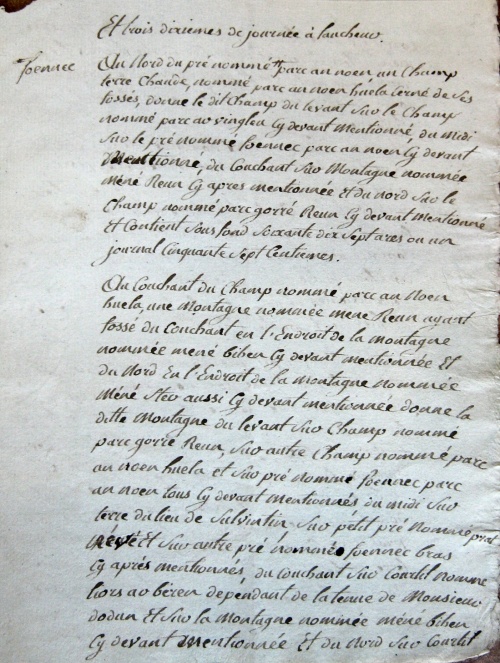 Et trois dixiemes de journée à faucheur.
foennec
Au Nord du pré nommé parc an noen, un Champ
terre Chaude, nommé parc an noen huela cerné de ses
fossés, donne le dit Champ du levant sur le Champ
nommé parc ar vingleu Cy devant Mentionné, du midi
sur le pré nommé foennec parc an noen Cy devant
Mentionné, du Couchant sur Montagne nommée
méné Reun Cy apres mentionnée et du nord sur le
Champ nommé parc gorré Reun Cy devant Mentionné
et Contient sous fond Soixante dix Sept ares ou un
journal Cinquante Sept Centiemes.
Au Couchant du Champ nommé parc an Noen
huela, une Montagne nommée méné Reun ayant
fossé du Couchant en l'Endroit de la montagne
nommée méné bihen Cy devant mentionnée Et
du Nord En l'Endroit de la montagne nommée
Méné Hev aussi Cy devant mentionnée donne la
ditte Montagne du levant sur Champ nommé
parc gorré Reun, sur autre Champ nommé parc
an noen huela et sur pré nommé foennec parc
an noen tous Cy devant mentionnés du midi sur
terre du lieu de Sulvintin sur petit pré nommé prat
névé Et sur autre pré nommé foennec bras
Cy après mentionnés, du Couchant sur Courtil nommé
liors ar béren dépendant de la tenue de Monsieur
dodun et sur la montagne nommée méné bihen
Cy devant Mentionnée et du Nord sur Courtil